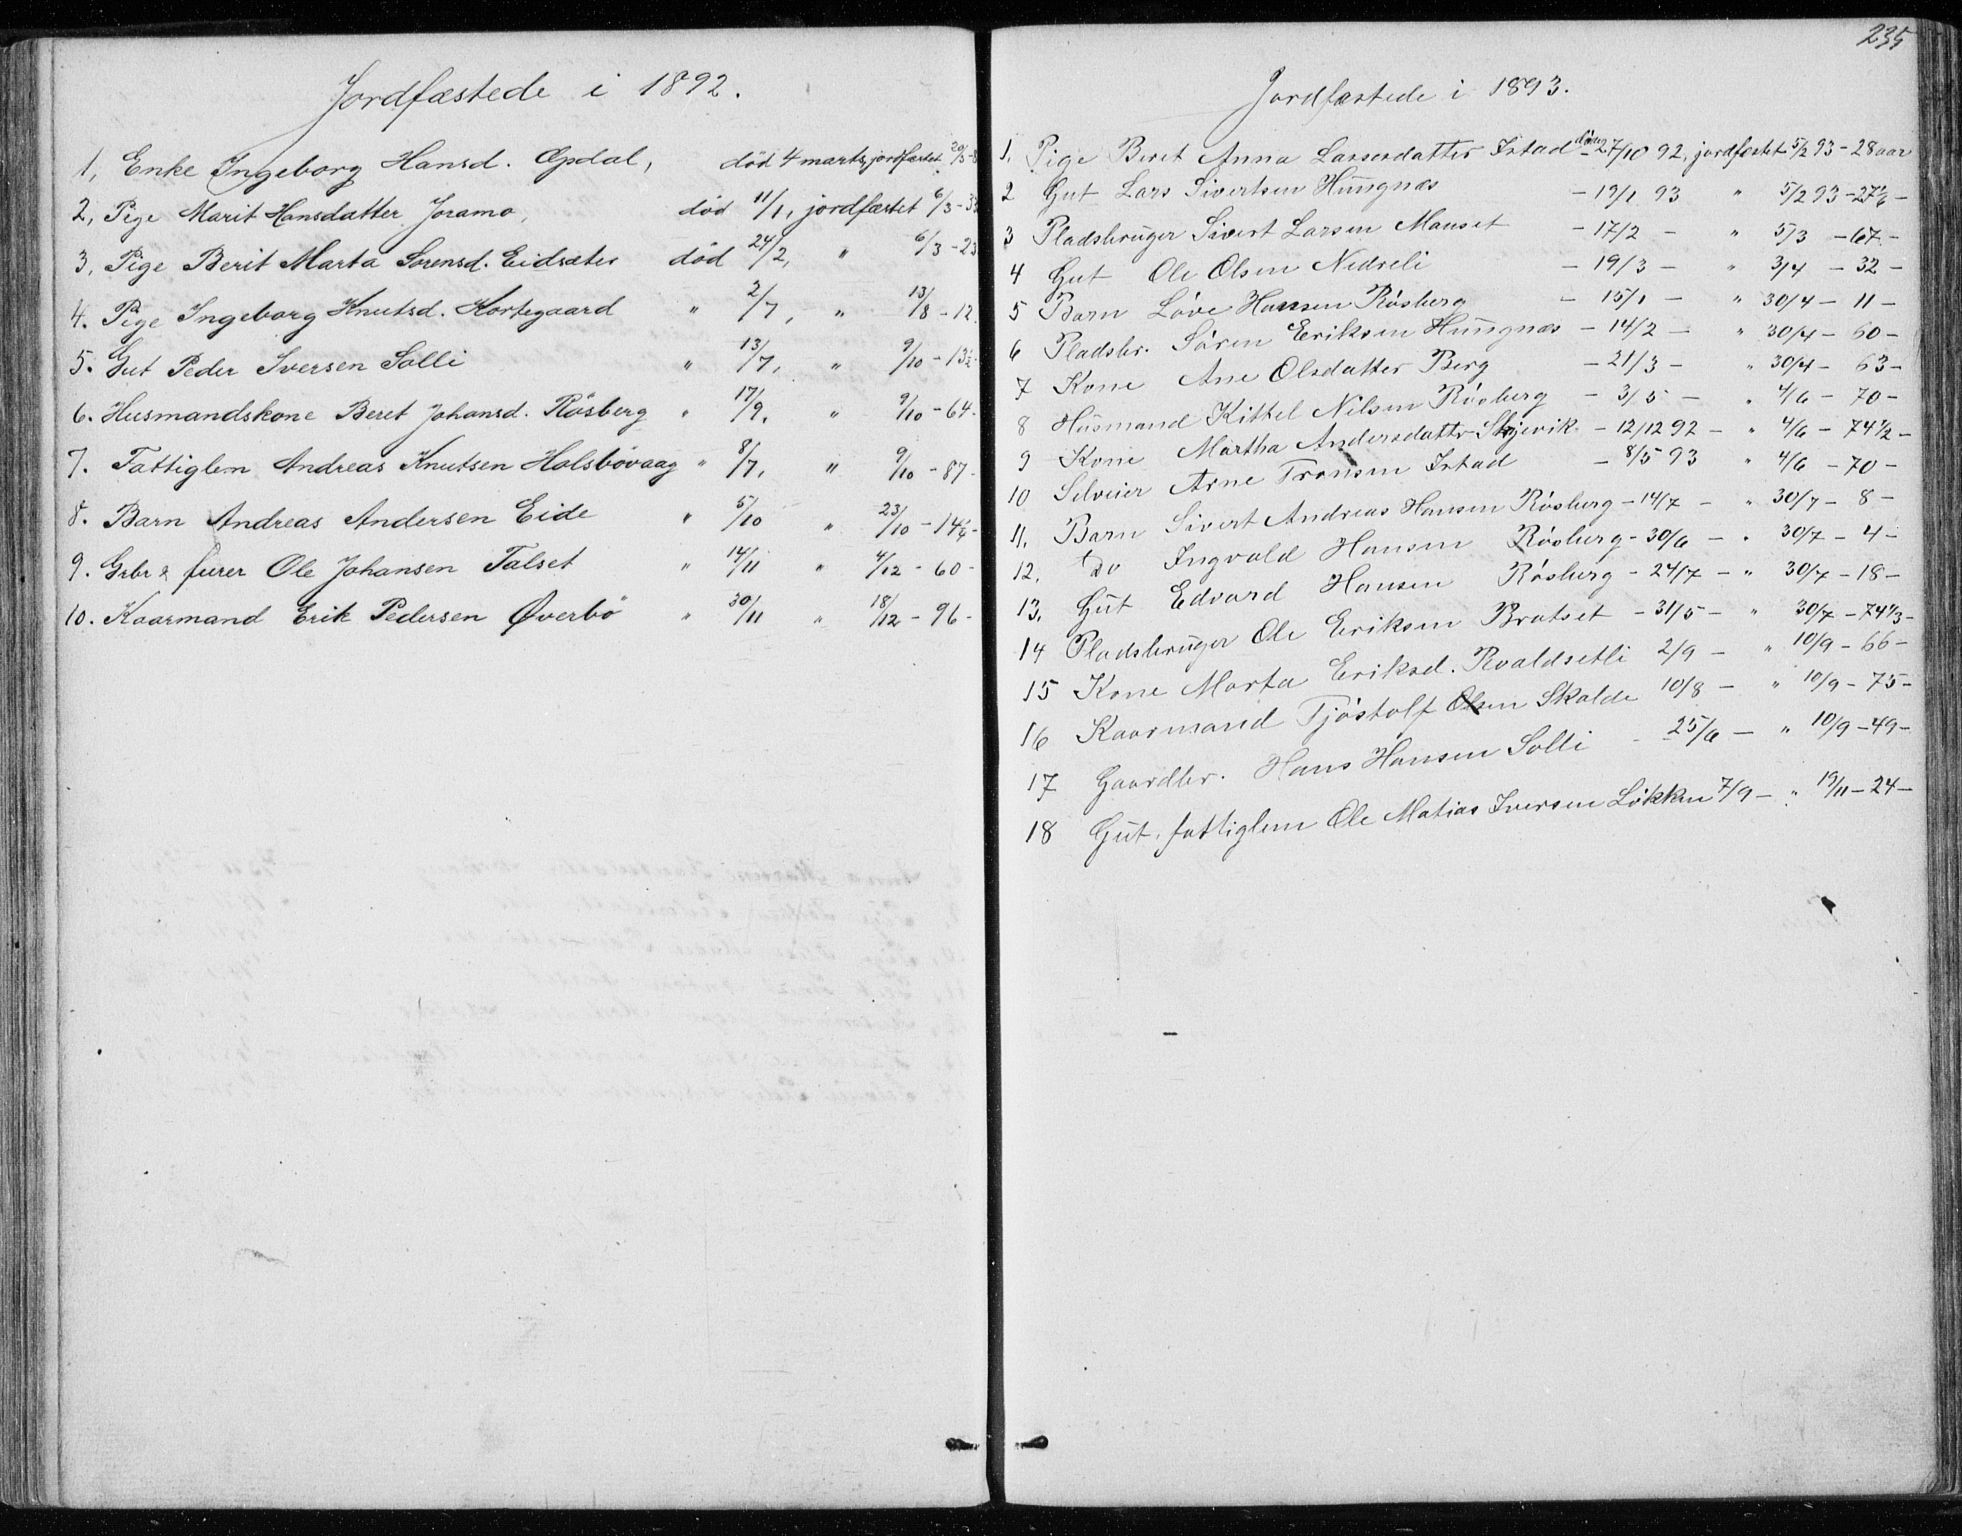 Jordfæstede i 1892.
1, Enke Ingeborg Hansd. Opdal, død 4 marts, jordfæstet 20/3-8
2, Pige Marit Hansdatter Joramo, død 11/1, jordfæstet 6/3-33
3, Pige Berit Marta Sørensd. Eidsæter død 24/2, " 6/3-23
4. Pige Ingeborg Knutsd. Kortegaard " 2/7, " 13/8-12.
5. Gut Peder Iversen Solli " 13/7, " 9/10-13½
6. Husmandskone Beret Johansd. Rösberg " 17/9, " 9/10-64-
7. Fattiglem Andreas Knutsen Holsbövaag " 8/7, " 9/10-87-
8. Barn Andreas Andersen Eide " 5/10 " 23/10-14½-
9. Grbr & furer Ole Johansen Talset " 14/11 " 4/12-60-
10. Kaarmand Erik Pedersen Øverbö " 30/11 " 18/12-96-
235
Jordfæstede i 1893.
1. Pige Beret Anna Larsesdatter Istad død 27/10 92, jordfæstet 5/2 93-28 aar
2 Gut Lars Sivertsen Hungnæs - 19/1 93 " 5/2 93-27½-
3 Pladsbruger Sivert Larsen Manset - 17/2 - " 5/3 -67.-
4 Gut Ole Olsen Nedreli - 19/3 - " 3/4 - 32 -
5 Barn Løve Hansen Rösberg - 15/1 - " 30/4 - 11 -
6 Pladsbr. Sören Eriksen Hungnæs - 14/2 - " 30/4 - 60 -
7 Kone Ane Olsdatter Berg - 21/3 - " 30/4 - 63 -
8 Husmand Kittel Nilsen Rösberg - 3/5 - " 4/6 - 70 -
9 Kone Martha Andersdatter Skjevik - 12/12 92 - " 4/6 - 74½ -
10 Selveier Arne Tronsen Istad - 8/5 93 " 4/6 - 70 -
11. Barn Sivert Andreas Hansen Rösberg - 14/7 - " 30/7 - 8 -
12. Do Ingvald Hansen Rösberg - 30/6 - " 30/7 - 4 -
13. Gut Edvard Hansen Rösberg - 24/7 - " 30/7 - 18 -
14 Pladsbruger Ole Eriksen Bratset - 31/5 - " 30/7 - 74⅓ -
15 Kone Marta Eriksd. Roaldsetli 2/9 - " 10/9 - 66 -
16 Kaarmand Tjöstolf Olsen Skalde 10/8 - " 10/9 - 75 -
17 Gaardbr. Hans Hansen Solli - 25/6 - " 10/9 - 49 -
18 Gut, fattiglem Ole Matias Iversen Lökken 7/9 - " 19/11 - 24 -